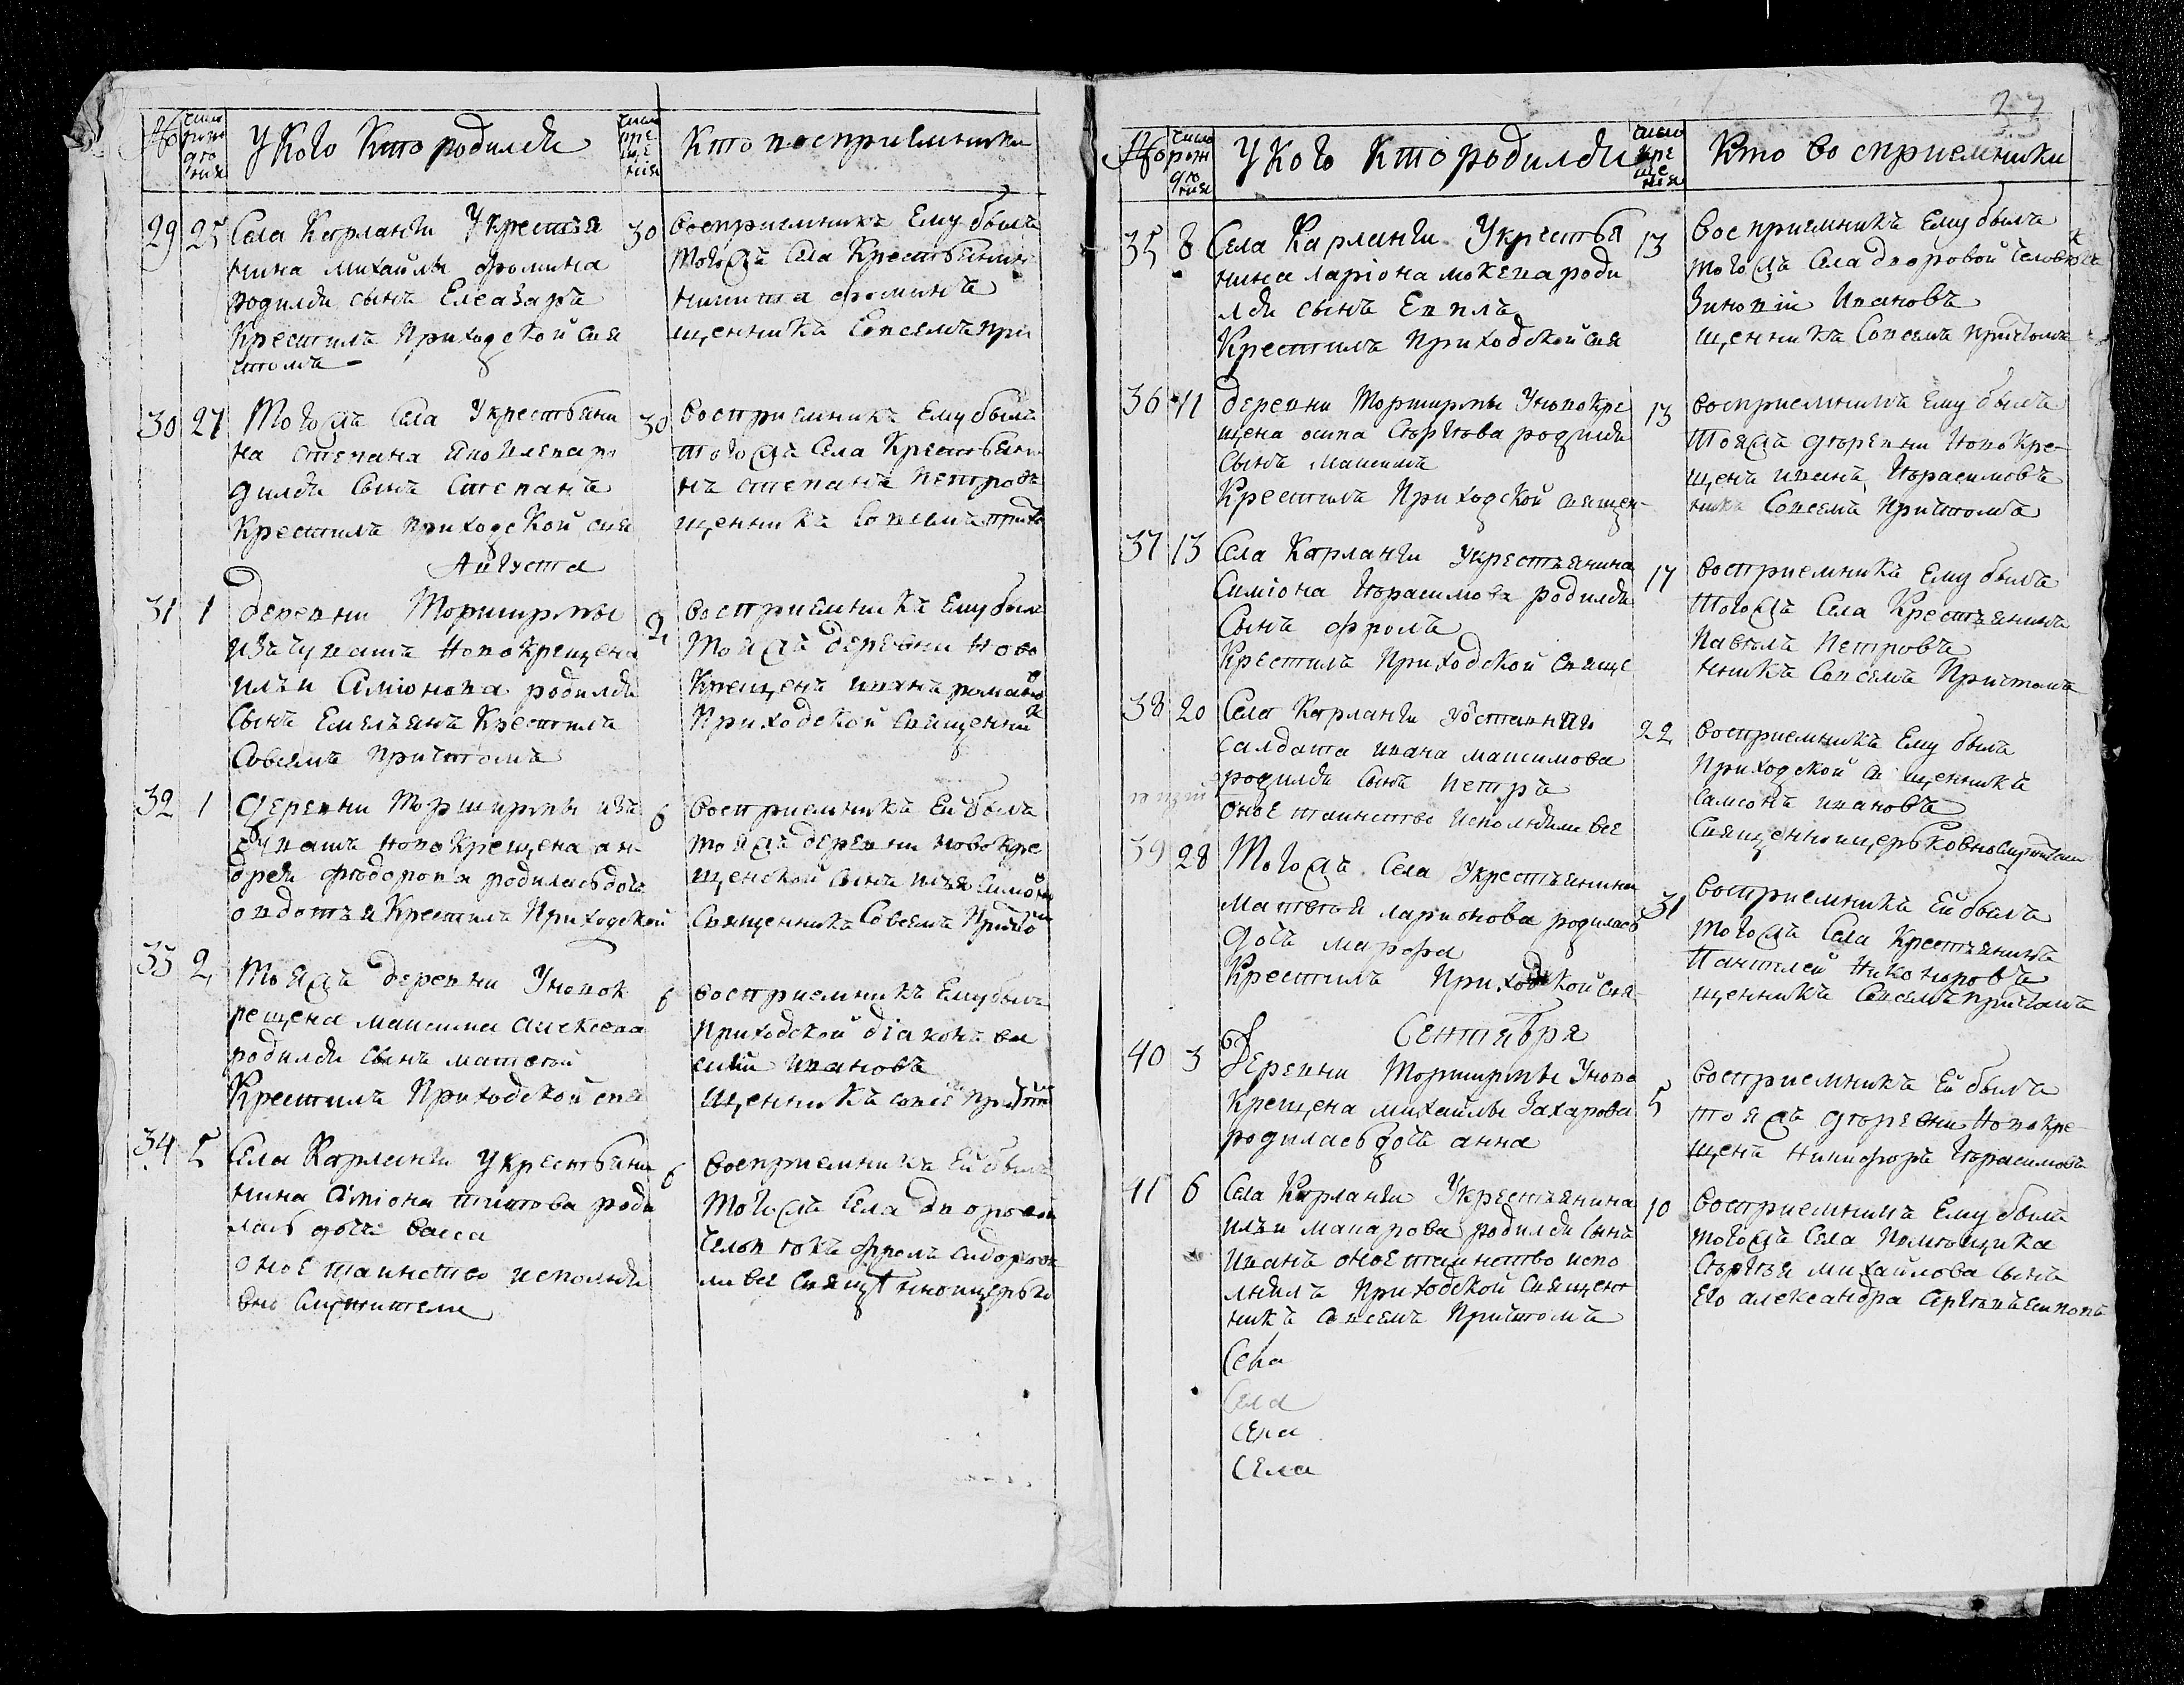 33
No
число рождения
У кого кто родился
число крещения
Кто восприемники
29 25 Села Карланги У крестья
нина михайлы фомина
родился сынъ Елеазаръ
Крестилъ Приходской свя
30 восприемникъ Ему былъ
тогожъ Села Крестьянинъ
никита фоминъ
щенникъ Совсемъ при
чтомъ
30 27 Тогожъ Села У крестьяни
на степана яковлева ро
дился Сынъ Степанъ
Крестилъ приходской свя
30 восприемникъ Ему былъ
тогожъ Села Крестьяни
нъ степанъ петровъ
щенникъ Совсемъ причто
Августа
31 1 деревни Торширмы
изъ чувашъ новокрещена
ильи Симионова родился
Сынъ Емельянъ Крестилъ
Совсемъ Причтомъ
2 восприемникъ Ему былъ
Тояжъ деревни ново
Крещенъ иванъ романов
Приходской Священник
32 1 деревни Торширмы изъ
чувашъ новокрещена ан-
дрея федорова родилась дочь
овдотья Крестилъ Приходской
6 восприемникъ Ей былъ
тояжъ деревни новокре
щенской Сынъ илья Симионов
Священникъ Совсемъ Причто
33 2 Тояжъ деревни У новок
рещена максима алексеева
родился сынъ матвей
Крестилъ Приходской свя
6 восприемникъ Ему былъ
приходской діаконъ ва
силий ивановъ
щенникъ совсе причтом
34 5 Села Карланги У крестьяни
нина Симiона титова роди
лась дочь васса
оное таинство исполня
вно служители
6 восприемникъ Ей былъ
Тогожъ Села дворовой
человекъ фролъ сидоровъ
ли все священноцерько
No
число рождения
У кого кто родился
число крещения
Кто восприемники
35 8 Села Карланги У крестья
нина ларiона мокеева роди
лся сынъ Евплъ
Крестилъ Приходской свя
13 восприемникъ Ему былъ
тогожъ Села дворовой человекъ
Зиновiй Ивановъ
щенникъ Совсемъ причтомъ
36 11 деревни Торширмы У новокре
щена осипа Сергеева родился
Сынъ максимъ
Крестилъ Приходской священ-
13 восприемникъ Ему былъ
Тояжъ деревни Новокре-
щенъ иванъ Герасимовъ
никъ Совсемъ Причтомъ
37 13 Села Карланги У крестьянина
Симiона Герасимова родился
Сынъ фролъ
Крестилъ Приходской свяще
17 восприемникъ Ему былъ
Тогожъ Села Крестьянинъ
Павелъ Петровъ
нникъ Совсемъ Причтомъ
38 20 Села Карланги У отставнаго
салдата ивана максимова
родился Сынъ петръ
оное таинство исполняли все
22 восприемникъ Ему былъ
Приходской священникъ
Самсонъ ивановъ
Священноицерьковнослужители
39 28 Тогожъ Села У крестьянина
матвея ларионова родилась
дочь марфа
Крестилъ Приходской свя-
31 восприемникъ Ей былъ
Тогожъ Села Крестьянинъ
Пантелей никоноровъ
щенникъ Совсемъ причтомъ
Сентября
40 3 деревни Торширмы У ново
Крещена михайлы Захарова
родилась дочь анна
5 восприемникъ Ей былъ
тояжъ деревни Новокре-
щенъ никифоръ Герасимовъ
41 6 Села Карланги У крестьянина
ильи макарова родился Сынъ
Иванъ оное таинство испо
лнялъ Приходской Священ
никъ Совсемъ Причтомъ
10 восприемникъ Ему былъ
тогожъ Села Помещика
Сергея михайлова Сынъ
Его александра
Села
Села
Села
Села